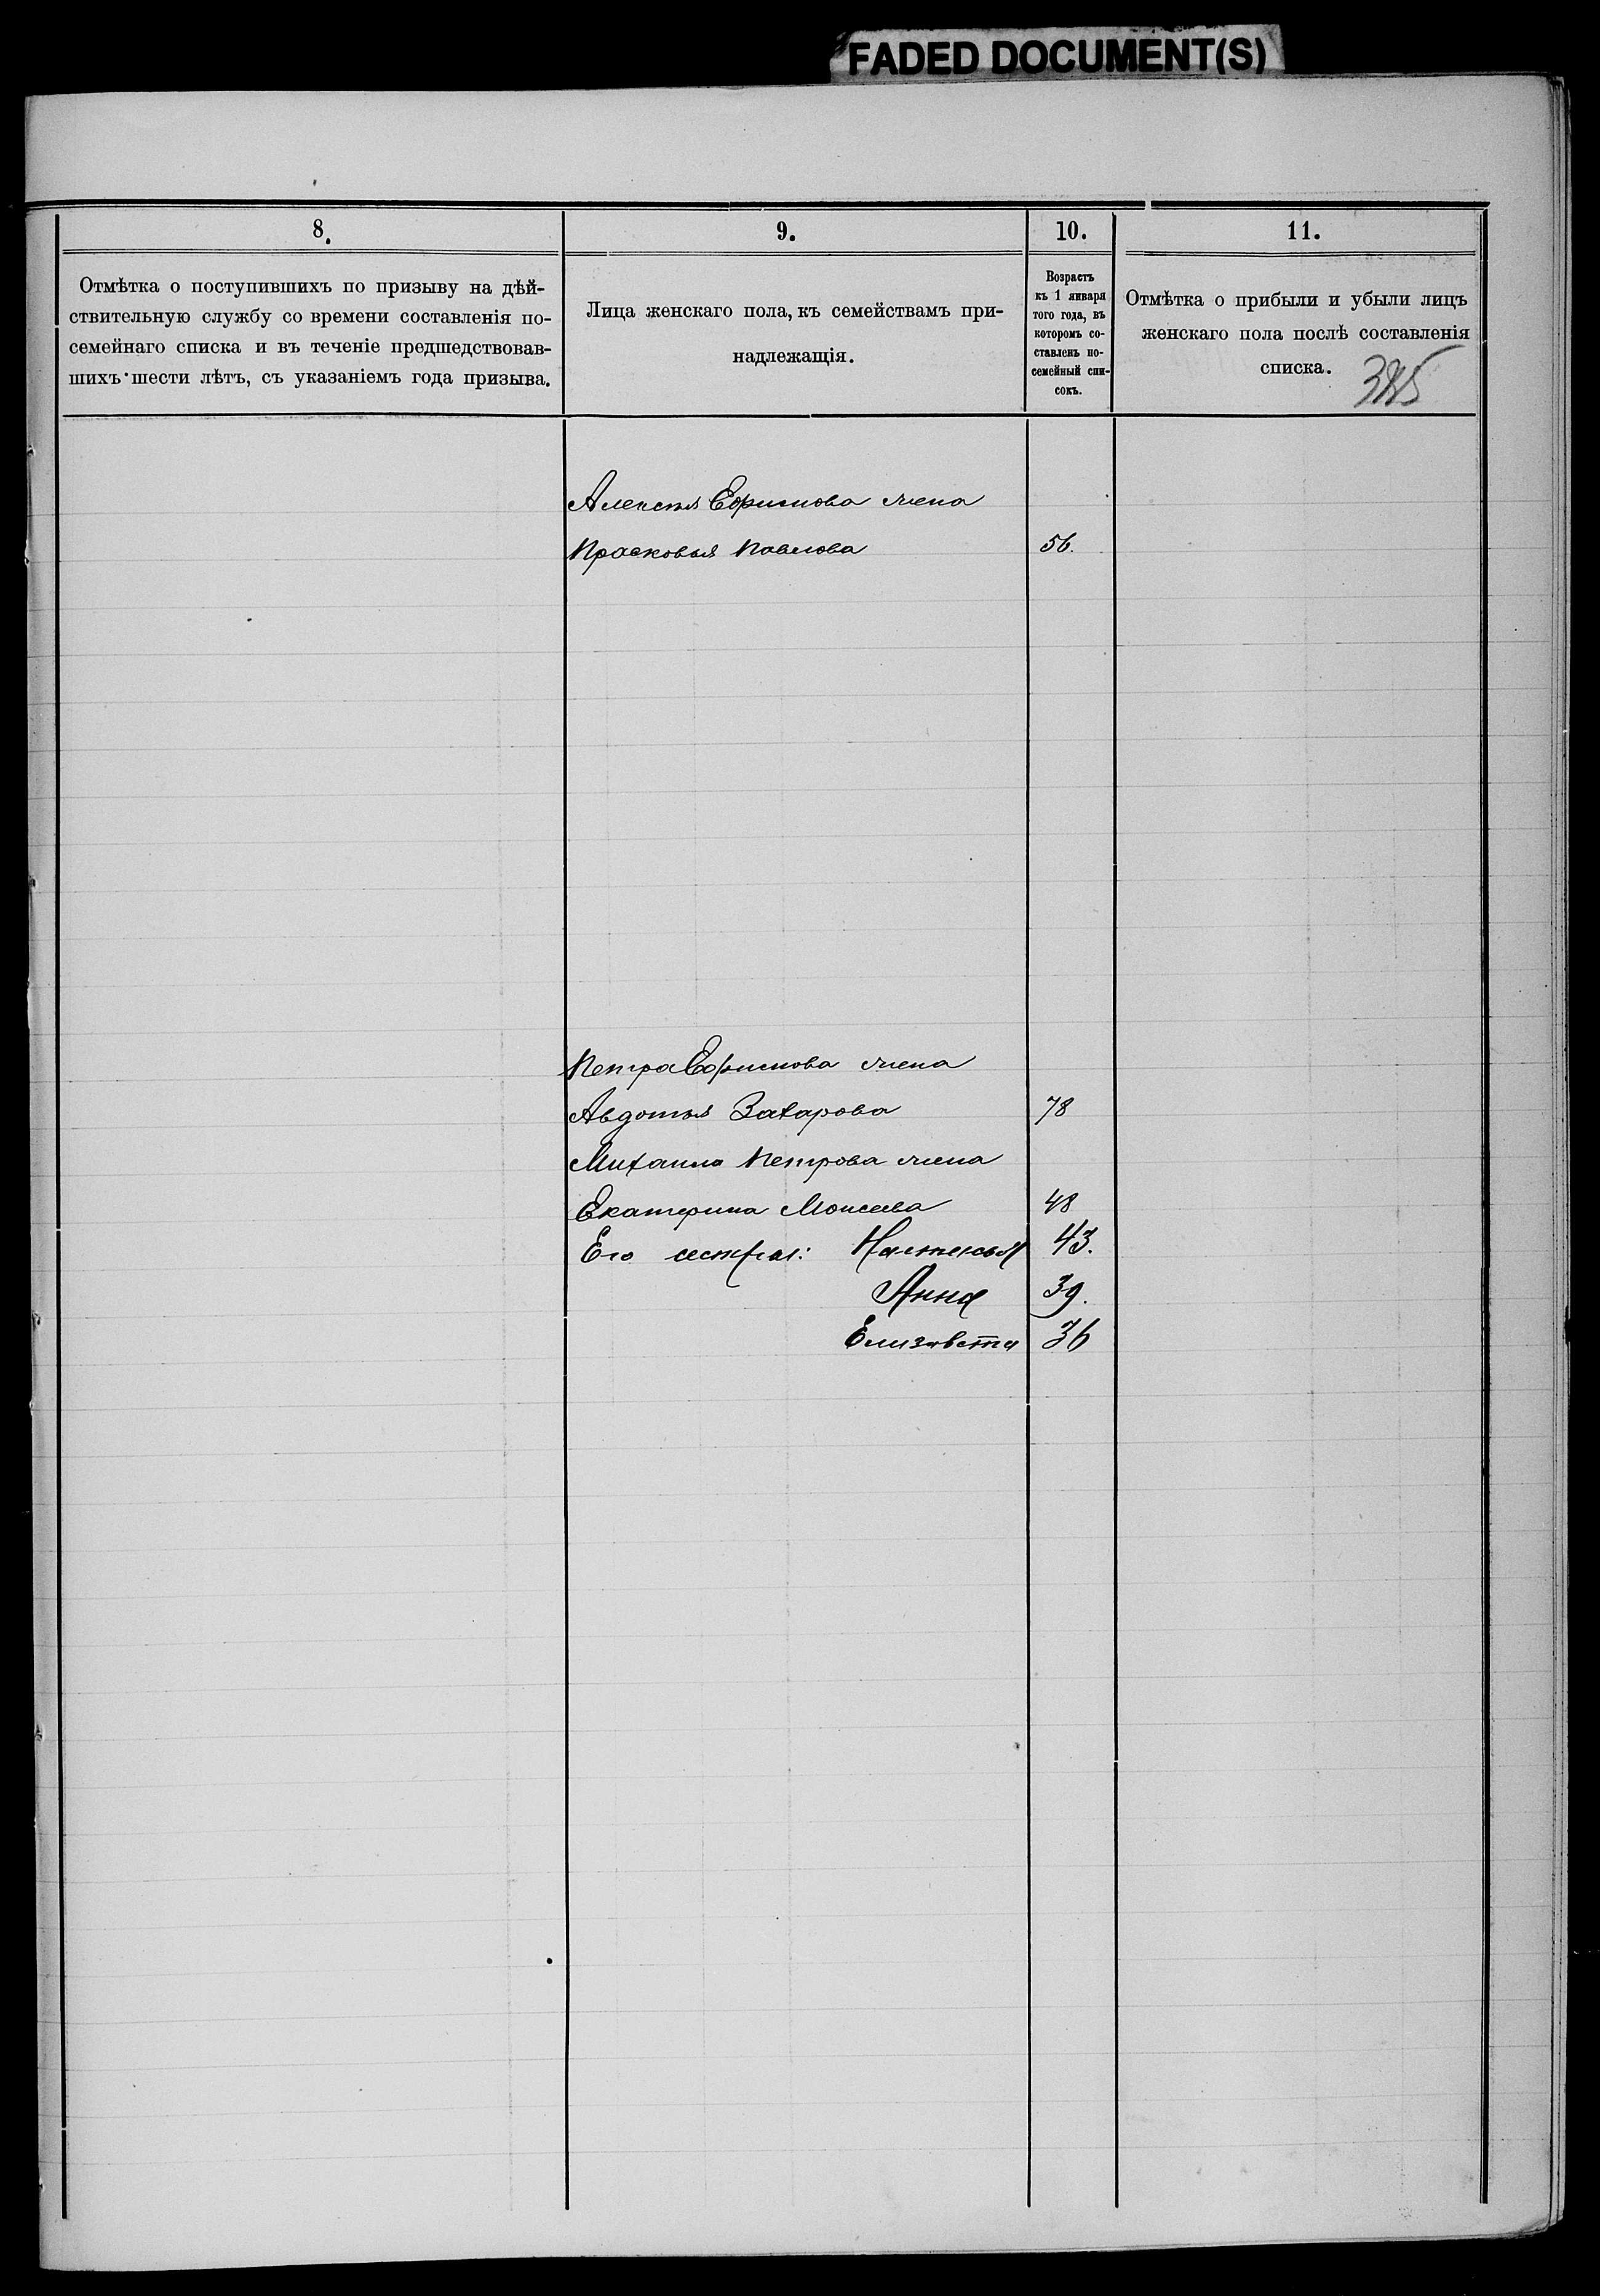 FADED DOCUMENT(S)
8.
9.
10.
11.
Отмѣтка о поступившихъ по призыву на дѣй-
ствительную службу со времени составленія по-
семейнаго списка и въ теченіе предшедствовав-
шихъ шести лѣтъ, съ указаніемъ года призыва.
Лица женскаго пола, къ семействамъ при-
надлежащія.
Возрастъ
къ 1 января
того года, въ
которомъ со-
ставленъ по-
семейный спи-
сокъ.
Отмѣтка о прибыли и убыли лицъ
женскаго пола послѣ составленія
списка.
Алексѣя Ефимова жена
Прасковья Павлова 56.
Петра Ефимова жена
Авдотья Захарова 78
Михаила Петрова жена
Екатерина Моисеева 48
Его сестры: 43.
Анна 39.
Елизавета 36